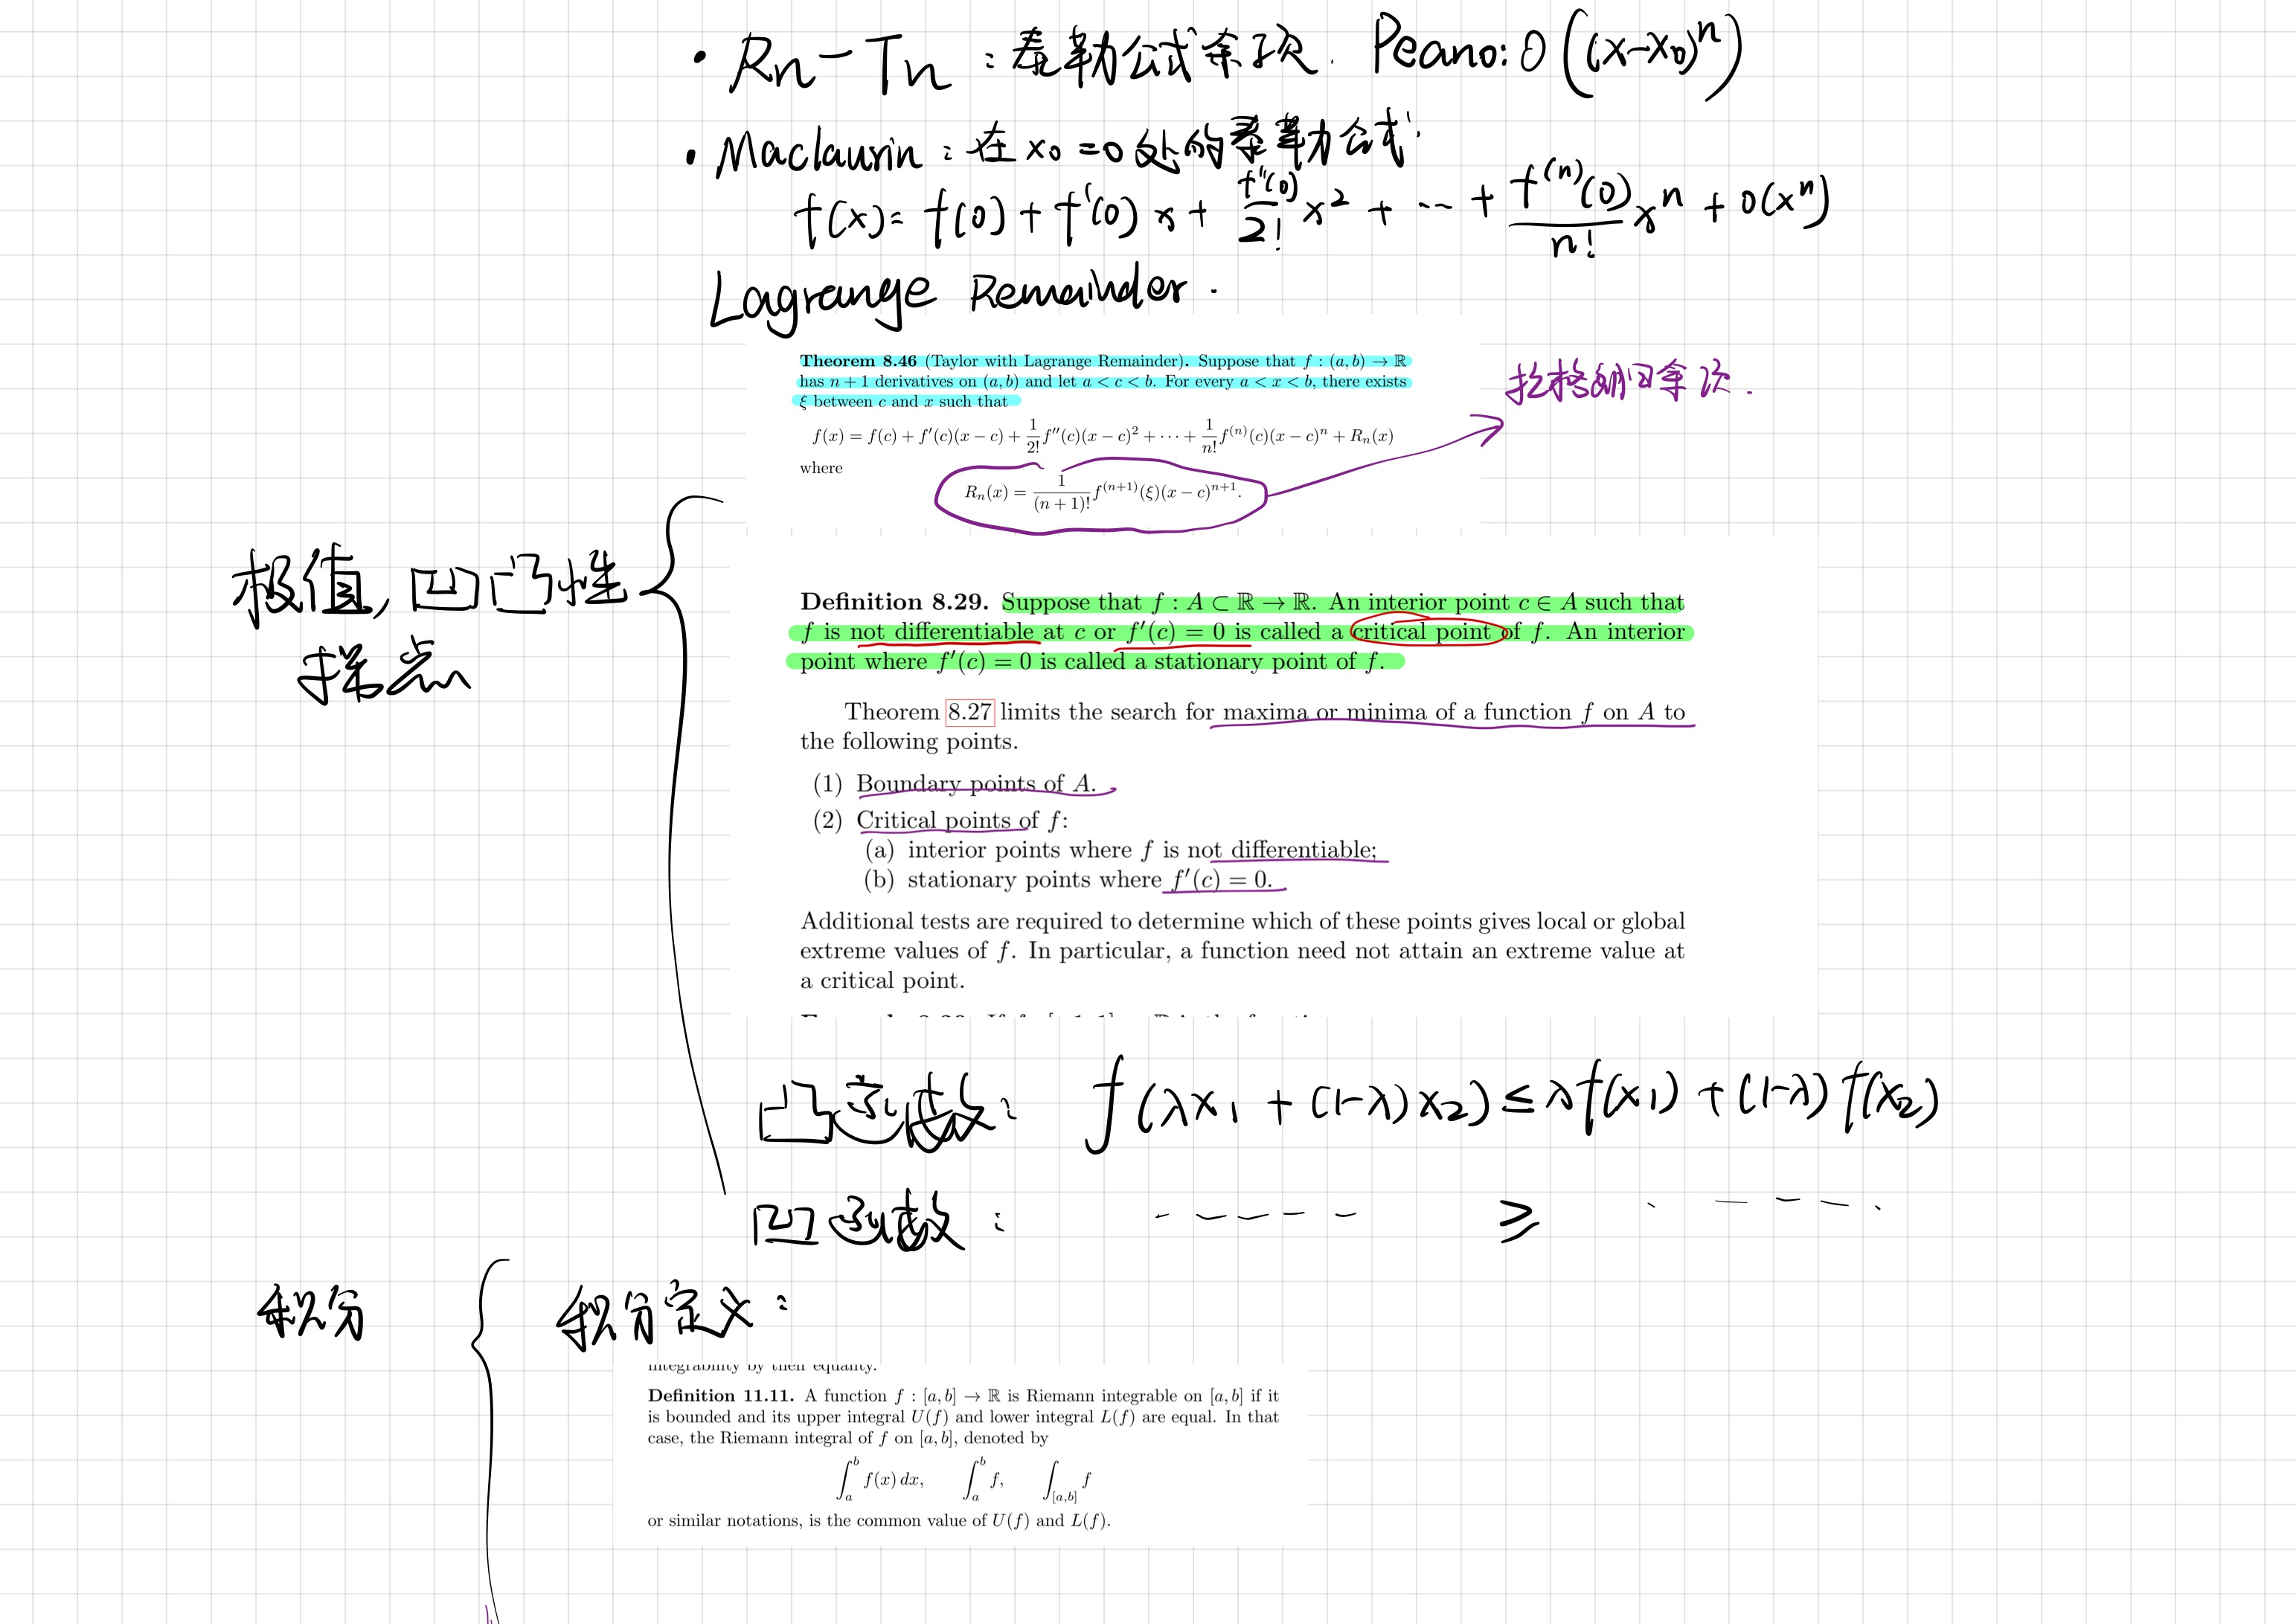 • Rn - Tn：泰勒公式余项. Peano: o((x-x₀)ⁿ)
• Maclaurin：在 x₀=0 处的泰勒公式：
f(x) = f(0) + f'(0)x + f''(0)/2! x² + ⋯ + f⁽ⁿ⁾(0)/n! xⁿ + o(xⁿ)
Lagrange Remainder.
Theorem 8.46 (Taylor with Lagrange Remainder). Suppose that f : (a, b) → ℝ
has n + 1 derivatives on (a, b) and let a < c < b. For every a < x < b, there exists
ξ between c and x such that
拉格朗日余项.
f(x) = f(c) + f′(c)(x − c) + 1/2! f′′(c)(x − c)² + ⋯ + 1/n! f⁽ⁿ⁾(c)(x − c)ⁿ + Rₙ(x)
where
Rₙ(x) = 1/(n + 1)! f⁽ⁿ⁺¹⁾(ξ)(x − c)ⁿ⁺¹.
极值, 凹凸性
拐点
Definition 8.29. Suppose that f : A ⊂ ℝ → ℝ. An interior point c ∈ A such that
f is not differentiable at c or f′(c) = 0 is called a critical point of f. An interior
point where f′(c) = 0 is called a stationary point of f.
Theorem 8.27 limits the search for maxima or minima of a function f on A to
the following points.
(1) Boundary points of A.
(2) Critical points of f:
(a) interior points where f is not differentiable;
(b) stationary points where f′(c) = 0.
Additional tests are required to determine which of these points gives local or global
extreme values of f. In particular, a function need not attain an extreme value at
a critical point.
凸函数： f(λx₁ + (1-λ)x₂) ≤ λf(x₁) + (1-λ)f(x₂)
凹函数： ----- ≥ -----
积分
积分定义：
integrability by their equality.
Definition 11.11. A function f : [a, b] → ℝ is Riemann integrable on [a, b] if it
is bounded and its upper integral U(f) and lower integral L(f) are equal. In that
case, the Riemann integral of f on [a, b], denoted by
∫ₐᵇ f(x) dx, ∫ₐᵇ f, ∫_[a,b] f
or similar notations, is the common value of U(f) and L(f).